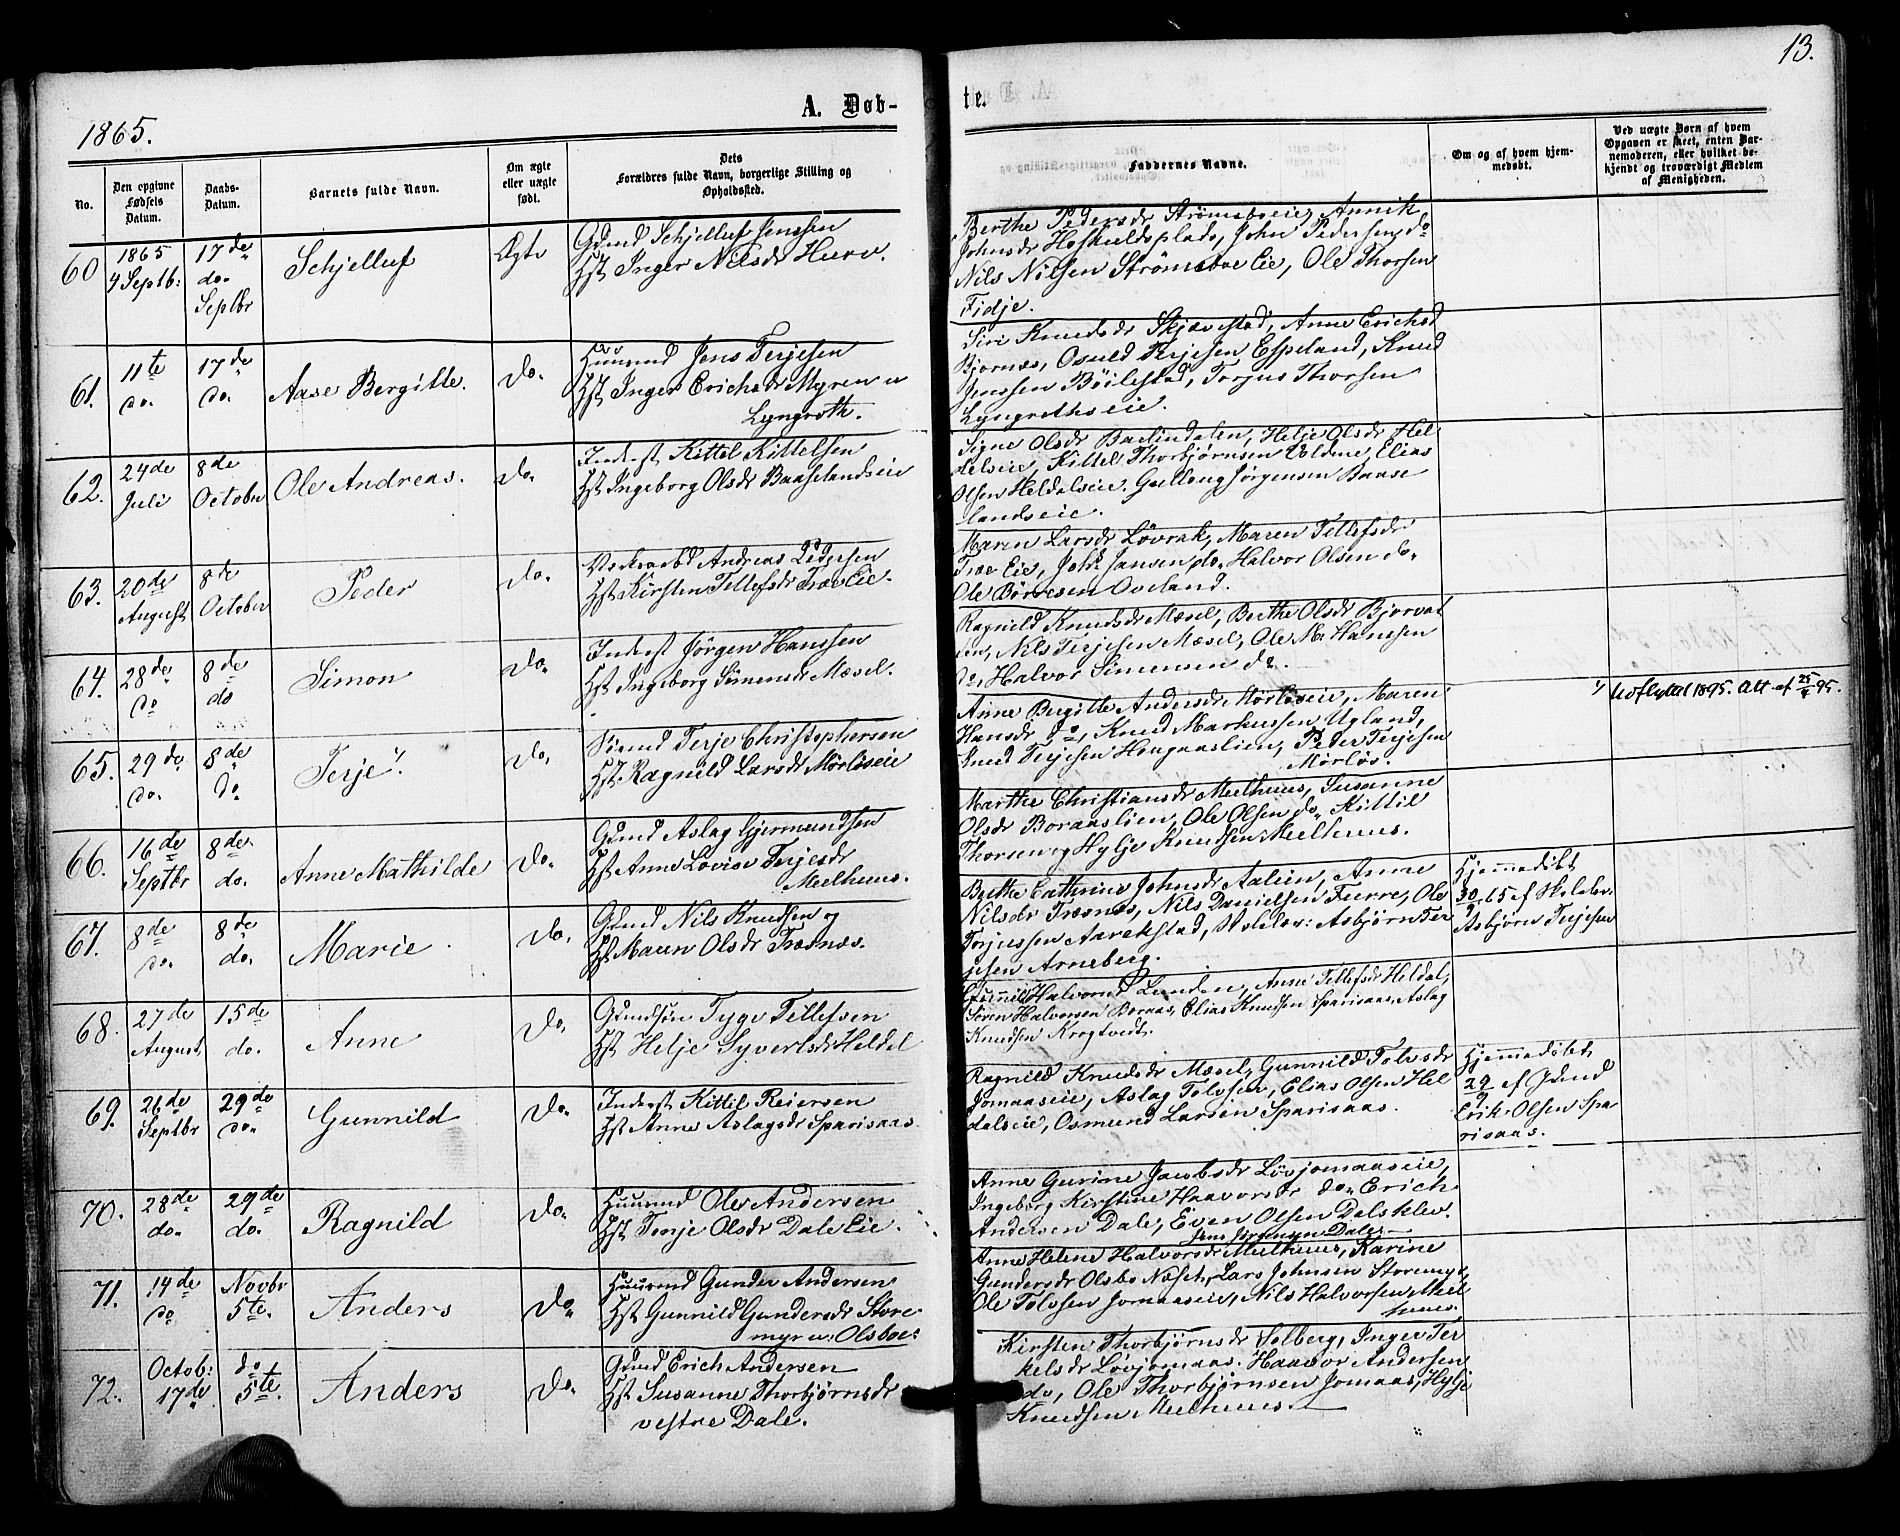 13.
A. Døb-
te.
1865.
No.
Den opgivne
Fødsels
Datum.
Daabs-
Datum.
Barnets fulde Navn.
Om ægte
eller uægte
født.
Dets
Forældres fulde Navn, borgerlige Stilling og
Opholdssted.
Faddernes Navne.
Om og af hvem hjem-
medøbt.
Ved uægte Børn af hvem
Opgaven er skeet, enten Bar-
nemoderen, eller hvilket be-
kjendt og troværdigt Medlem
af Menigheden.
60
1865
4 Septb:
17de
do.
Septbr
Schjelluf
Ægte
Gdmd Schjelluf Jenssen
Hst Inger Nilsdr Hurv.
Berthe Pedersdr Strømsboeie, Annik
Johnsdr Hoskuldsplads, John Pedersen do
Nils Nilsen Strømsboe Eie, Ole Thorsen
Fidje.
61.
11te
do.
17de
do.
Aase Bergitte.
do.
Huusmd Jens Terjesen
Hst Inger Erichsdr Myren u
Lyngroth.
Siri Knudsdr Skjævestad, Anne Erichsd
Bjornæs, Osuld Terjesen Espeland, Knud
Jenssen Bøilestad, Torjus Thorsen
Lyngrothseie.
62.
24de
Juli
8de
October
Ole Andreas.
do.
Inderst Kittel Kittelsen
Hst Ingeborg Olsdr Baaselandseie
Signe Olsdr Barlindalen, Helje Olsdr Hel
dalseie, Kittel Thorbjørnsen Veldene, Elias
Olsen Heldalseie. Gullaug Jørgensen Baase
landseie.
63.
20de
August
8de
October
Peder
do.
Andreas Pedersen
Hst Kirsten Tellefsdr Træ Eie.
Maren Larsdr Løvrak, Maren Tellefsdr
Træ Eie, Jansen do. Halvor Olsen do.
Ole Børresen Oveland.
64.
28de
do
8de
do
Simon
do.
Inderst Jørgen Hanssen
Hst Ingeborg Simensdr Mæsel.
Ragnild Knudsdr Mæsel, Berthe Olsdr Bjorvat
Nils Terjesen Mæsel, Ole M. Hanssen
do, Halvor Simensen do.
65.
29de
do.
8de
do
Terje 1/.
do.
Terje Christophersen
Hst Ragnild Larsdr Mørløseie
Anne Bergitte Andersdr Mørløseie, Maren
Hansdr do, Knud Markussen Ugland,
Knud Terjesen Hougaaslien, Peder Terjesen
Mørløs.
1/ Udflyttet 1895. Att af 25/ 95.
66.
16de
Septbr
8de
do.
Anne Mathilde
do.
Gdmd Aslag Gjermundsen
Hst Anne Lovise Terjesdr
Mælhuus.
Marthe Christiansdr Mælhuus, Susanne
Olsdr Boraaslien, Ole Olsen do. Kittil
Thorsen og Hylje Knudsen Mælhuus.
67.
8de
do.
8de
do.
Marie
do.
Gdmd Nils Knudsen og
Hst Maren Olsdr Træsnæs.
Berthe Cathrine Johnsdr Aalien, Anne
Nilsdr Træsnæs, Nils Danielsen Furre, Ole
Torjussen Aarekstad, Skolelær: Asbjørn Ter
jesen Arneberg.
Hjemmedøbt
30/9 65 af Skolelær.
Asbjørn Terjesen
68.
27de
August
15de
do.
Anne
do.
Gdmdsøn Tyge Tellefsen
Hst Helje Syvertsdr Heldal
Gunnild Halvorsd Lunden, Anne Tellefsdr Heldal,
Søren Halvorsen Boraas, Elias Knudsen Sparisaas, Aslag
Knudsen Krogtvedt.
69.
26de
Septbr
29de
do.
Gunnild
do.
Inderst Kittil Reiersen
Hst Anne Aslagsdr Sparisaas
Ragnild Knudsdr Mæsel, Gunnild Tolvsdr
Jomaaseie, Aslag Tolvsen, Elias Olsen Hel
dalseie, Osmund Larsen Sparisaas.
Hjemmedøbt
29/9 af Gdmd
Erik Olsen Spa
risaas.
70.
28de
do.
29de
do.
Ragnild
do.
Huusmd Ole Andersen
Hst Tonje Olsdr Dale Eie.
Anne Gurine Jacobsdr Løvjomaaseie,
Ingeborg Kirstine Haavorsdr do. Erich
Andersen Dale, Even Olsen Dalsklev.
Jens Jørgensen Dale.
71.
14de
do
Novbr
5te.
Anders
do.
Huusmd Gunder Andersen
Hst Gunnild Gundersdr Store
myr u. Olsboe.
Anne Helene Halvorsdr Mælhuus, Karine
Gundersdr Olsbo Næset, Lars Johnsen Storemyr,
Ole Tolvsen Jomaaseie, Nils Halvorsen Mæl
huus.
72.
Octob:
17de
do
5te.
Anders
do.
Gdmd Erich Andersen
Hst Susanne Thorbjørnsdr
vestre Dale.
Kirsten Thorbjørnsdr Solberg, Inger Ter
kelsdr Løvjomaas. Haavor Andersen
do, Ole Thorbjørnsen Jomaas, Hylje
Knudsen Mælhuus.